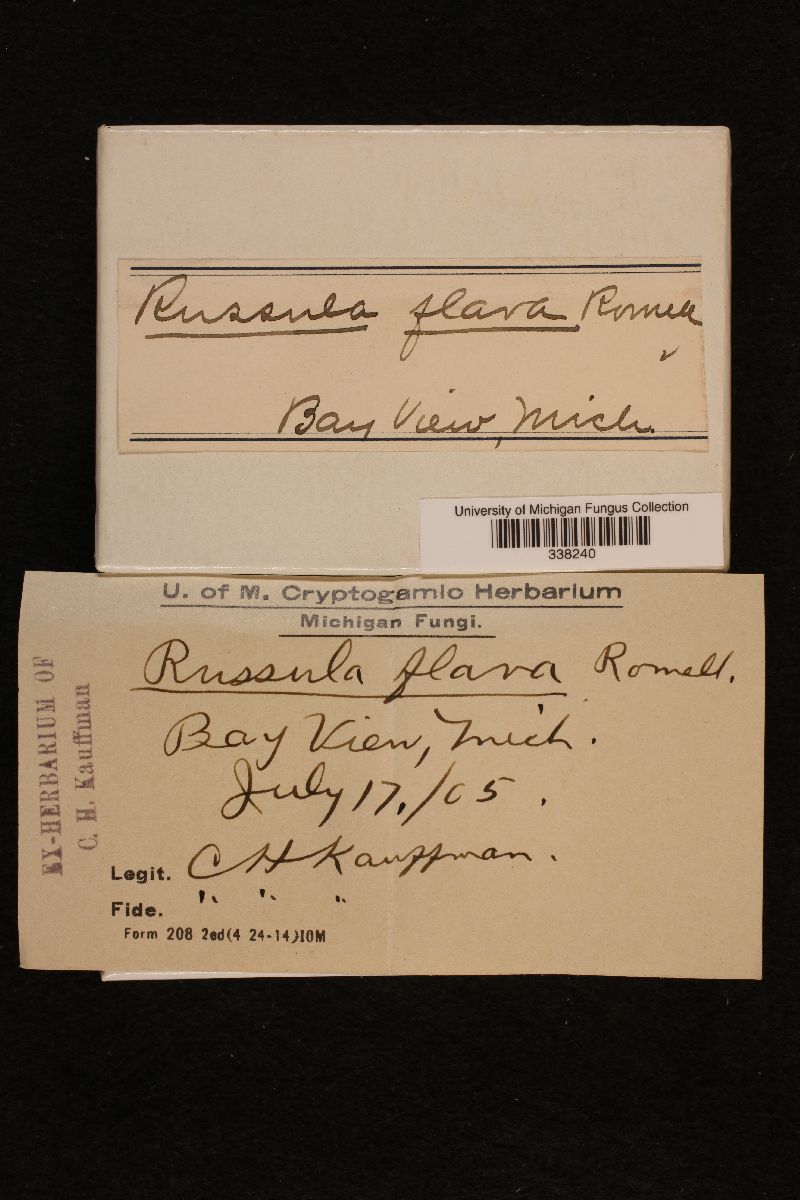 Russula flava Romell
Bay View, Mich.
University of Michigan Fungus Collection
338240
U. of M. Cryptogamic Herbarium
Michigan Fungi.
Russula flava Romell.
Bay View, Mich.
July 17, /05.
Legit. C H Kauffman.
Fide. " " "
Form 208 2ed(4 24-14)10M
EX-HERBARIUM OF
C. H. Kauffman